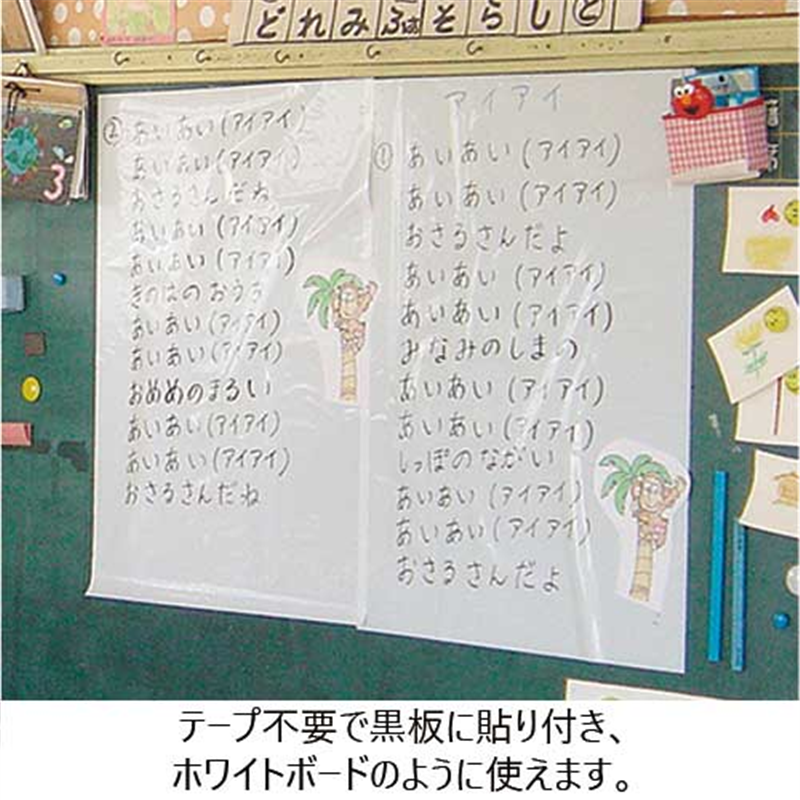 どれみふぁそらしど
アイアイ
① あいあい(アイアイ)
あいあい(アイアイ)
おさるさんだよ
あいあい(アイアイ)
あいあい(アイアイ)
みなみのしまの
あいあい(アイアイ)
あいあい(アイアイ)
しっぽのながい
あいあい(アイアイ)
あいあい(アイアイ)
おさるさんだよ
② あいあい(アイアイ)
あいあい(アイアイ)
おさるさんだね
あいあい(アイアイ)
あいあい(アイアイ)
きのはのおうち
あいあい(アイアイ)
あいあい(アイアイ)
おめめのまるい
あいあい(アイアイ)
あいあい(アイアイ)
おさるさんだね
3
テープ不要で黒板に貼り付き、
ホワイトボードのように使えます。